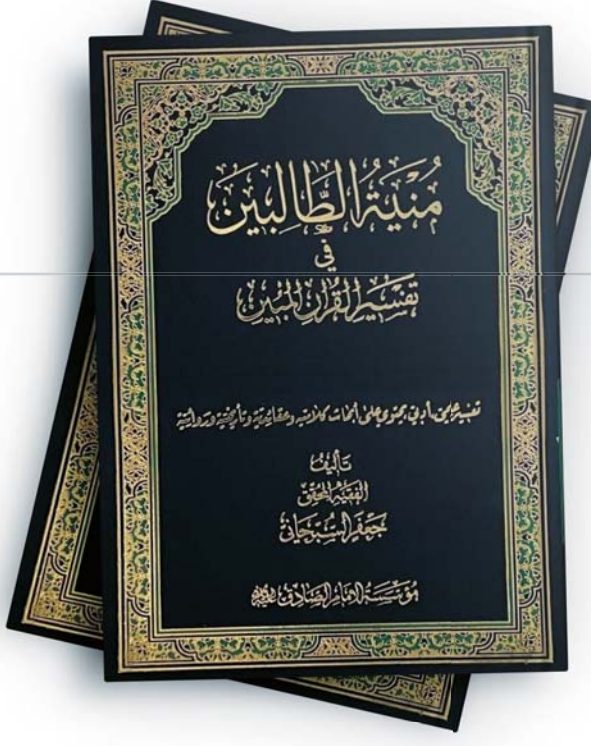 مُنْيَةُ الطَّالِبِينَ
فِي
تَفْسِيرِ الْقُرْآنِ الْمُبِينِ
تفسير علمي، أدبي يحتوي على أبحاث كلامية وعقائدية وتأريخية وروائية
تأليف
الفقيه المحقق
جعفر السبحاني
مؤسسة الإمام الصادق